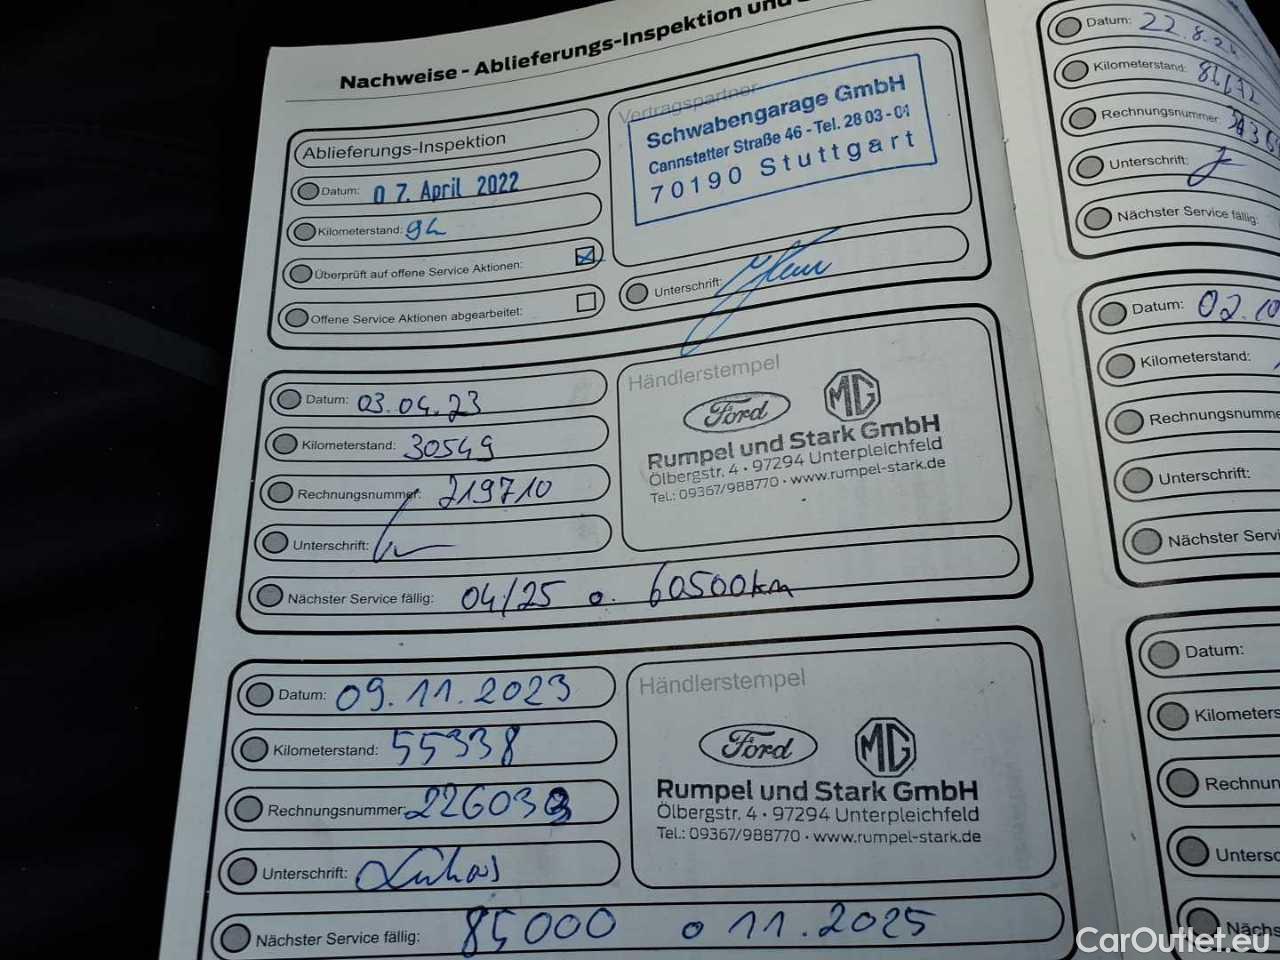 Nachweise - Ablieferungs-Inspektion und
Ablieferungs-Inspektion
Datum: 07. April 2022
Kilometerstand:
Überprüft auf offene Service Aktionen:
Offene Service Aktionen abgearbeitet:
Vertragspartner
Schwabengarage GmbH
Cannstatter Straße 46 - Tel. 28 03 - 01
70190 Stuttgart
Unterschrift:
Datum: 03.04.23
Kilometerstand: 30549
Rechnungsnummer: 219710
Unterschrift:
Nächster Service fällig: 04/25 o. 60500km
Händlerstempel
Ford MG
Rumpel und Stark GmbH
Ölbergstr. 4 • 97294 Unterpleichfeld
Tel.: 09367/988770 • www.rumpel-stark.de
Datum: 09.11.2023
Kilometerstand: 55338
Rechnungsnummer:
Unterschrift:
Nächster Service fällig: 85000 o 11.2025
Händlerstempel
Ford MG
Rumpel und Stark GmbH
Ölbergstr. 4 • 97294 Unterpleichfeld
Tel.: 09367/988770 • www.rumpel-stark.de
Datum: 22.8.24
Kilometerstand:
Rechnungsnummer:
Unterschrift:
Nächster Service fällig:
Datum: 02.10
Kilometerstand:
Rechnungsnumme
Unterschrift:
Nächster Servi
Datum:
Kilometers
Rechnun
Untersc
Nächs
CarOutlet.eu